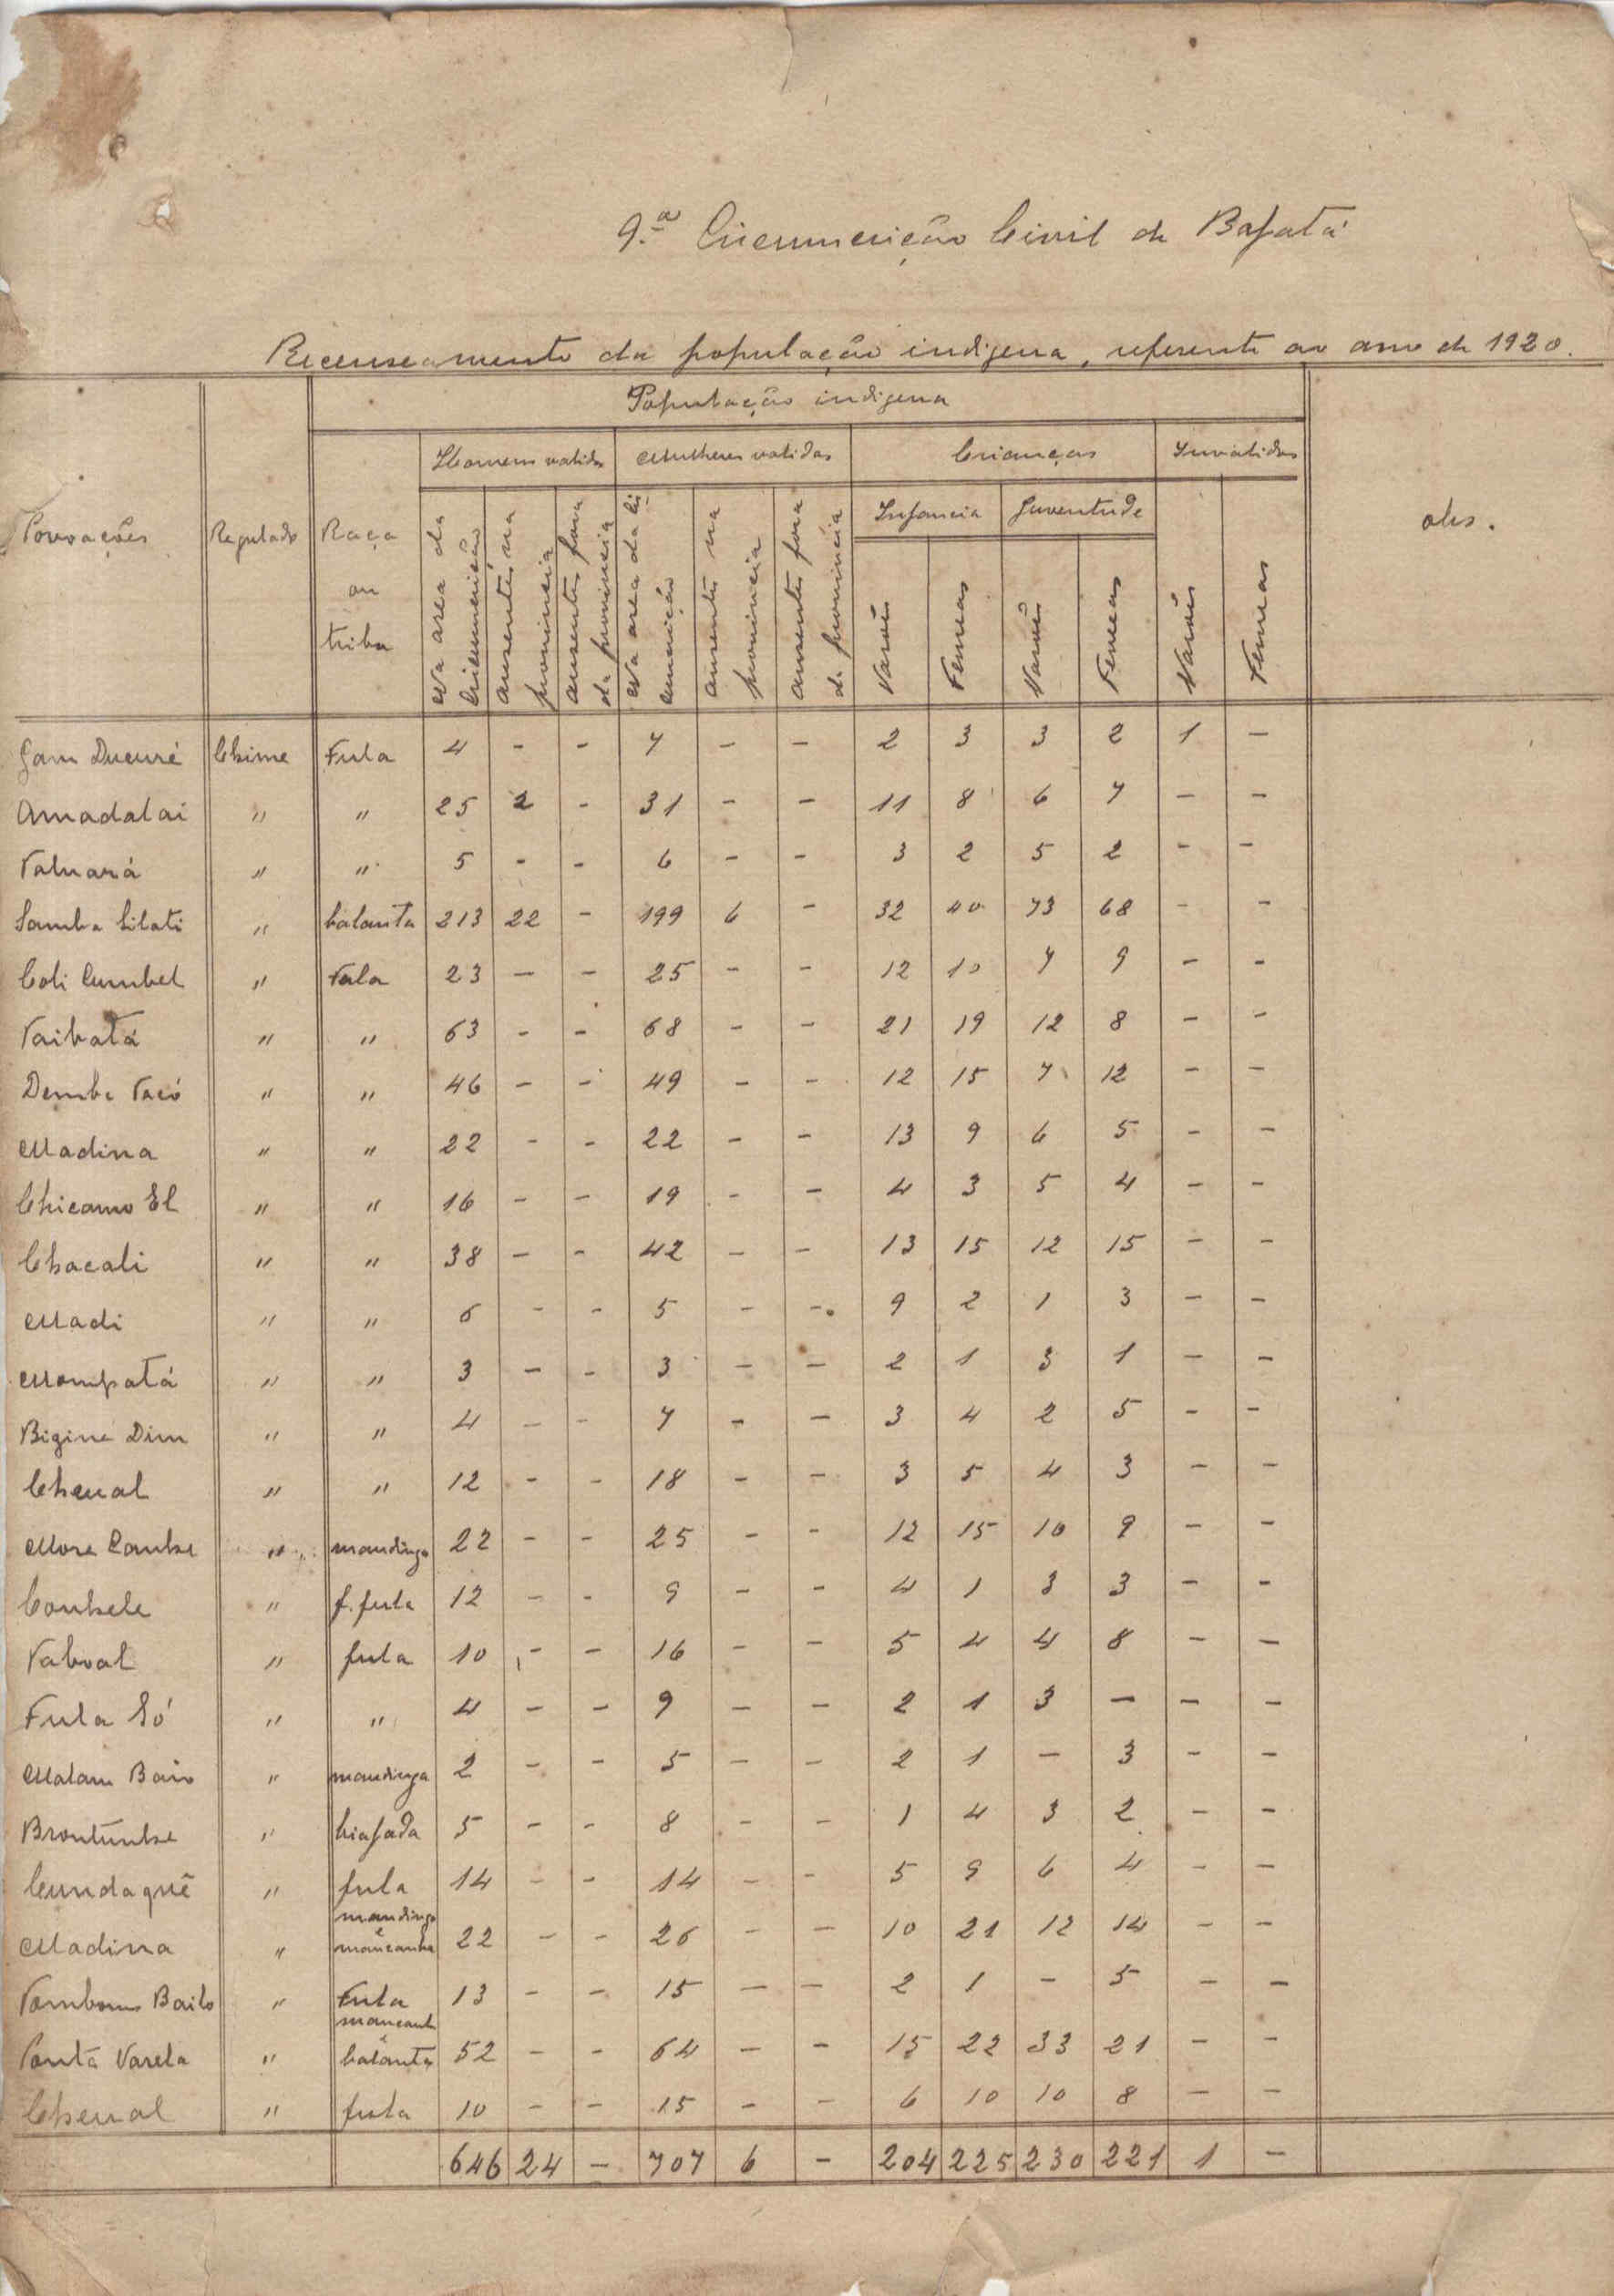 9.ª Circumcrição Civil de Bafatá
Recenseamento da população indigena, referente ao ano de 1920.
População indigena
Homens validos Mulheres validas Crianças Invalidos
Povoações Regulado Raça ou tribu Na area da circumcrição ausentes na provincia ausentes fora da provincia Na area da circumcrição ausentes na provincia ausentes fora da provincia Infancia Juventude obs.
Varões Femeas Varões Femeas Varões Femeas
Gam Ducuré Chime Fula 4 - - 7 - - 2 3 3 2 1 -
Amadalai " " 25 2 - 31 - - 11 8 6 7 - -
" " 5 - - 6 - - 3 2 5 2 - -
Samba Silati " balanta 213 22 - 199 6 - 32 40 73 68 - -
Coli Cumbel " Fula 23 - - 25 - - 12 10 7 9 - -
Taibatá " " 63 - - 68 - - 21 19 12 8 - -
Demba Tacó " " 46 - - 49 - - 12 15 7 12 - -
Madina " " 22 - - 22 - - 13 9 6 5 - -
Chicamo El " " 16 - - 19 - - 4 3 5 4 - -
Chacali " " 38 - - 42 - - 13 15 12 15 - -
Madi " " 6 - - 5 - - 9 2 1 3 - -
Mompatá " " 3 - - 3 - - 2 1 3 1 - -
Bigine Dim " " 4 - - 7 - - 3 4 2 5 - -
" " 12 - - 18 - - 3 5 4 3 - -
More " mandinga 22 - - 25 - - 12 15 10 9 - -
" f. fula 12 - - 9 - - 4 1 3 3 - -
" fula 10 - - 16 - - 5 4 4 8 - -
Fula Só " " 4 - - 9 - - 2 1 3 - - -
Malam Baio " mandinga 2 - - 5 - - 2 1 - 3 - -
" biafada 5 - - 8 - - 1 4 3 2 - -
Cundaguê " fula 14 - - 14 - - 5 9 6 4 - -
Madina " mandinga e mancanha 22 - - 26 - - 10 21 12 14 - -
Bailo " Fula 13 - - 15 - - 2 1 - 5 - -
Ponta Varela " e balanta 52 - - 64 - - 15 22 33 21 - -
" fula 10 - - 15 - - 6 10 10 8 - -
646 24 - 707 6 - 204 225 230 221 1 -